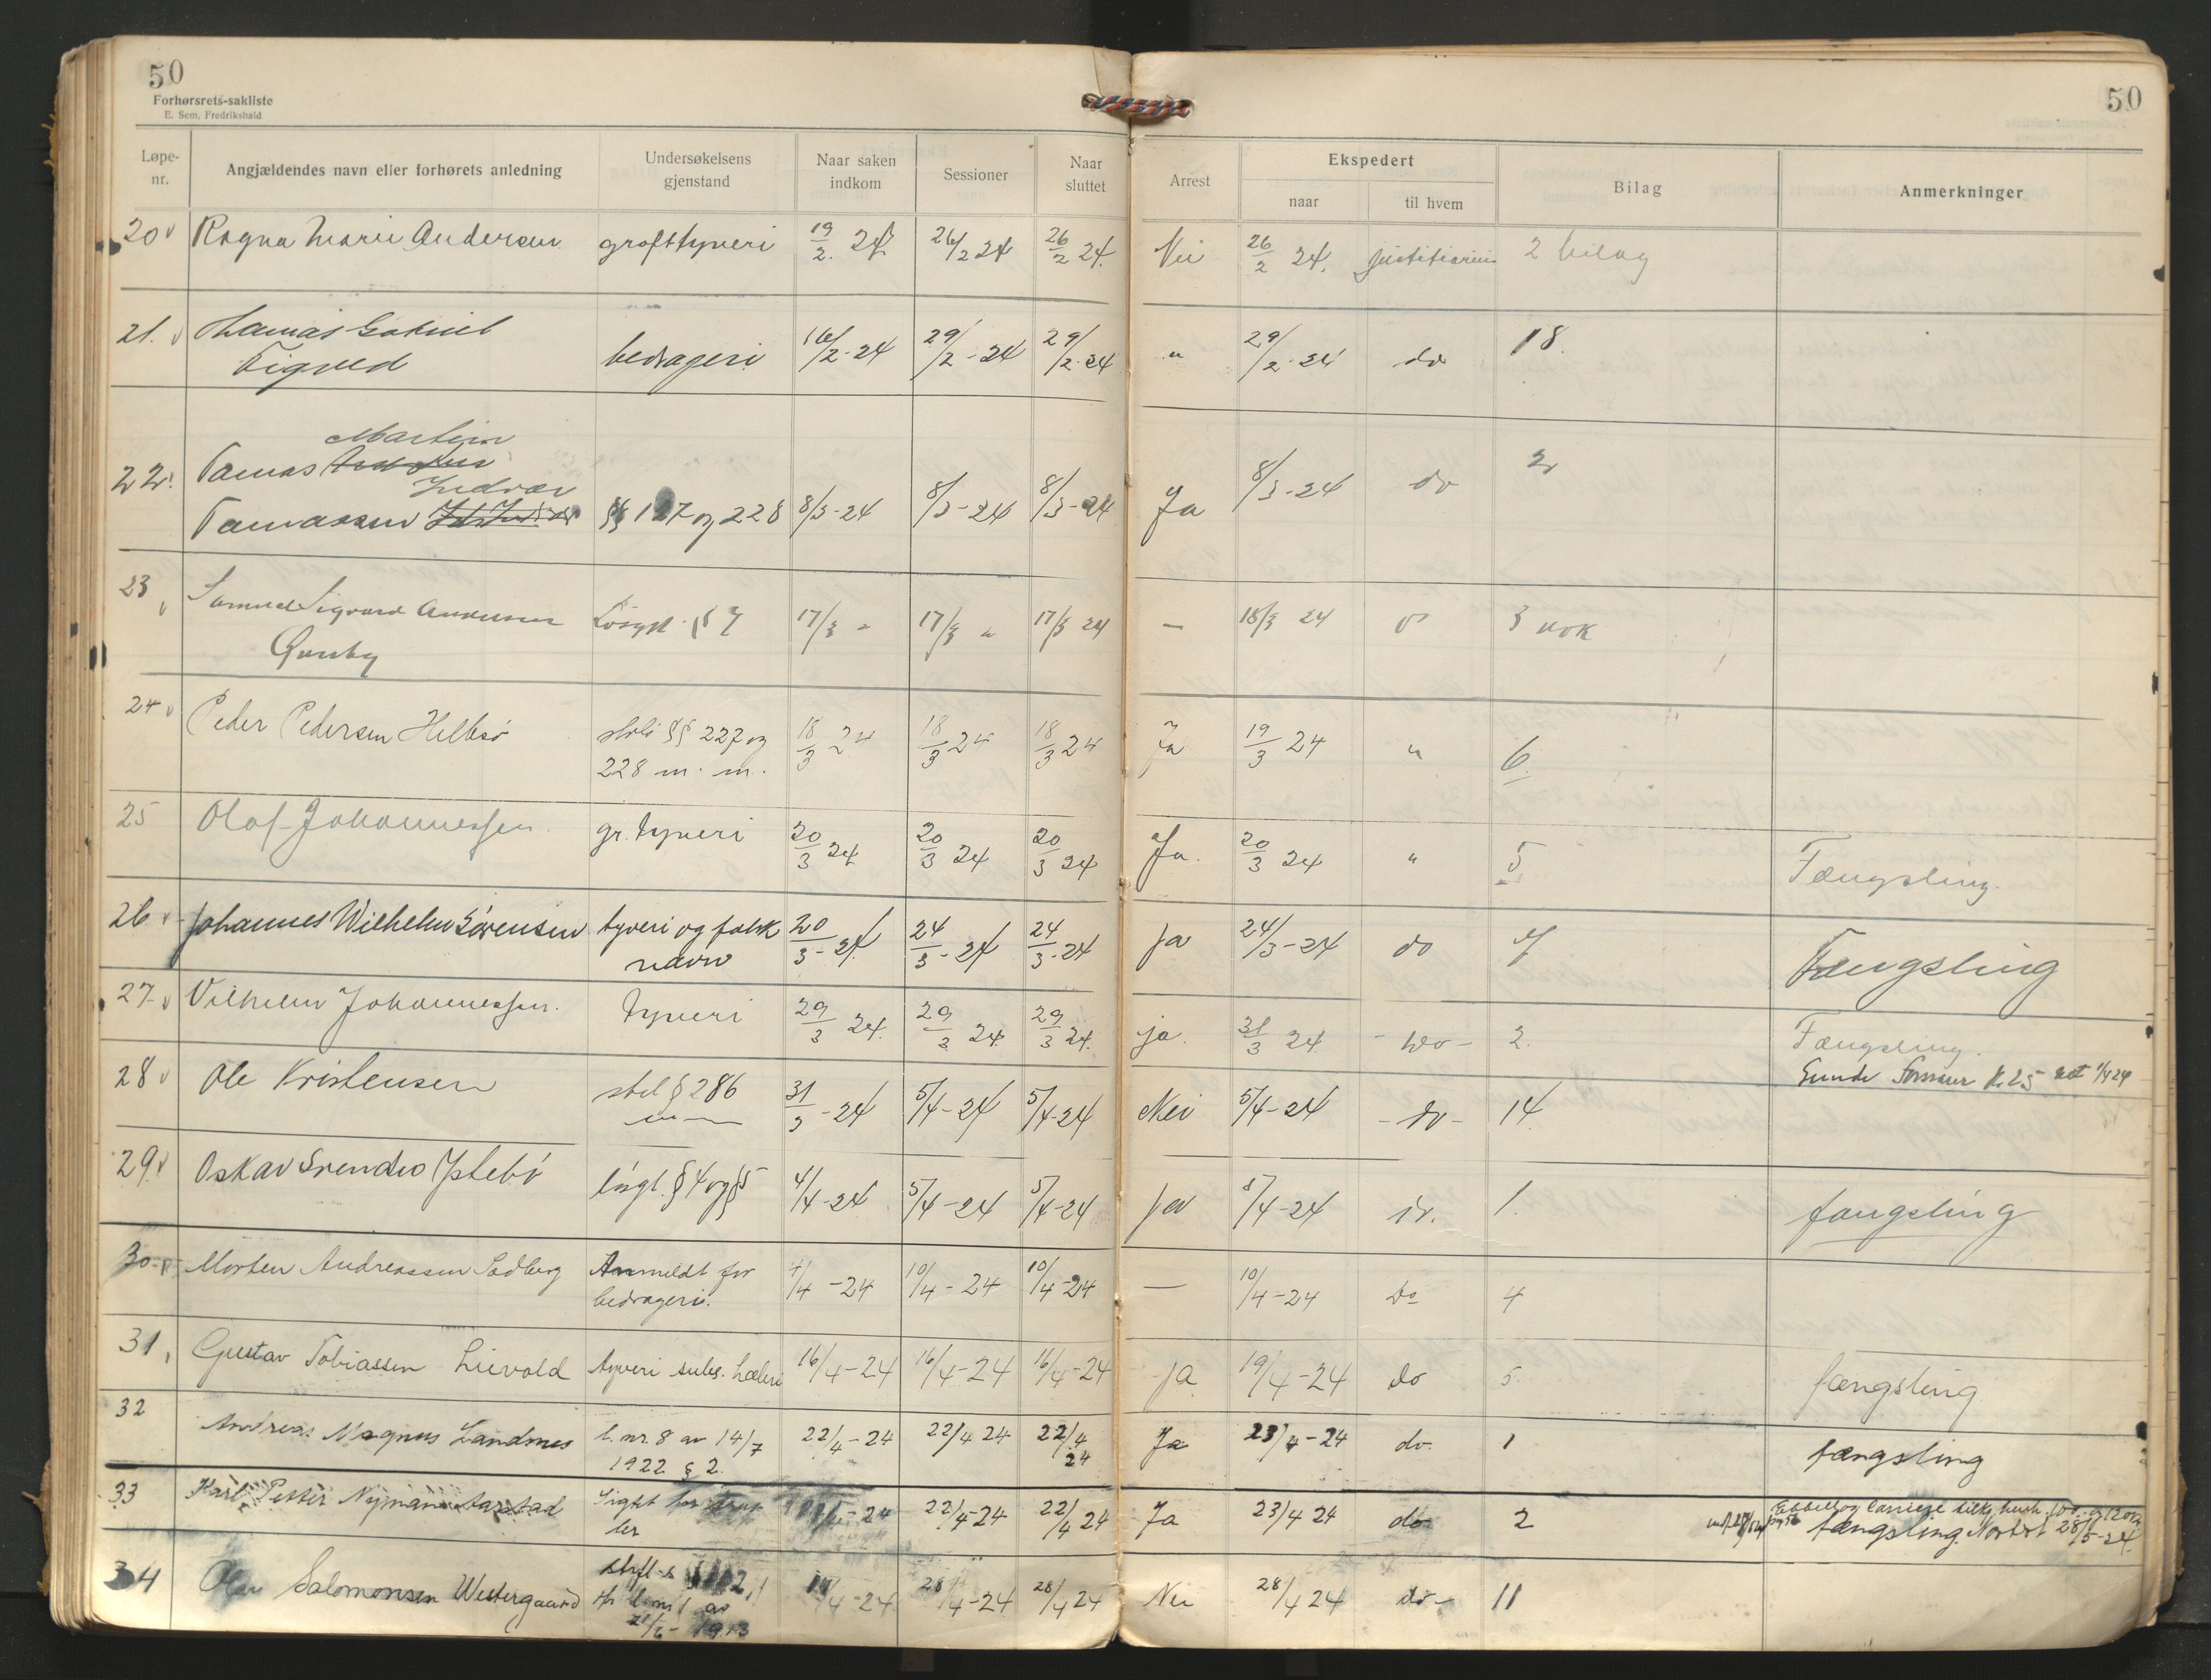 50
Forhørsrets-sakliste
E. Sem, Fredrikshald
50
Løpe-nr.
Angjældendes navn eller forhørets anledning
Undersøkelsens gjenstand
Naar saken indkom
Sessioner
Naar sluttet
Arrest
Ekspedert
naar
til hvem
Bilag
Anmerkninger
20 Ragna Marie Andersen groft tyveri 19/2. 24 26/2 24 26/2 24. Nei 26/2 24. justitiarius 2 bilag
21.
Tigved bedrageri 16/2-24 29/2-24 29/2-24 " 29/2-24 do 18.
Martin
22. Tomas
Indrær
Tomassen §§ 127 og 228 8/3-24 8/3-24 8/3-24 Ja 8/3-24 do 2
23 Samuel Sigvard Andersen Løsgl. § 7 17/3 " 17/3 " 17/3 24 — 18/3 24 3
24 Peder Pedersen Helleø §§ 227 og 18/3 24 18/3 24 18/3 24 Ja 19/3 24 " 6.
228 m. m.
25 Olaf Johannessen gr. tyveri 20/3 24 20/3 24 20/3 24 Ja. 20/3 24 " 5 Fængsling.
26 Johannes Wilhelm Sørensen tyveri og falsk 20/3-24 24/3-24 24/3-24 Ja 24/3-24 do 7 Fængsling
navn
27 Vilhelm Johannessen. tyveri 29/3 24. 29/3 24. 29/3 24. ja. 31/3 24 - do - 2. Fængsling.
28 Ole Kristensen strl § 286 31/3-24 5/4-24 5/4-24 Nei 5/4-24 - do - 14.
29. Oskar Svendse Ystebø løsgl. § 4 og § 5 4/4-24 5/4-24 5/4-24 Ja 5/4-24 do. 1. fængsling
30 Morten Andreassen Sadberg Anmeldt for 4/4-24 10/4-24 10/4-24 — 10/4-24 Do 4
bedrageri.
31 Gustav Tobiassen Lievold tyveri subs. hæleri 16/4-24 16/4-24 16/4-24 Ja 19/4-24 do 5 fængsling
32 Andreas Magnus Landmes l. nr. 8 av 14/7 22/4-24 22/4 24 22/4 24 Ja 23/4-24 do. 1 fængsling
1922 § 2.
33 Karl Petter Nymann Aarstad Sigtet for 22/4-24 22/4 24 Ja 23/4 24 do 2 fængsling.
34 Salomonsen Westergaard 28/4-24 28/4 24 Nei 28/4 24 do- 11
l. nr 1 av